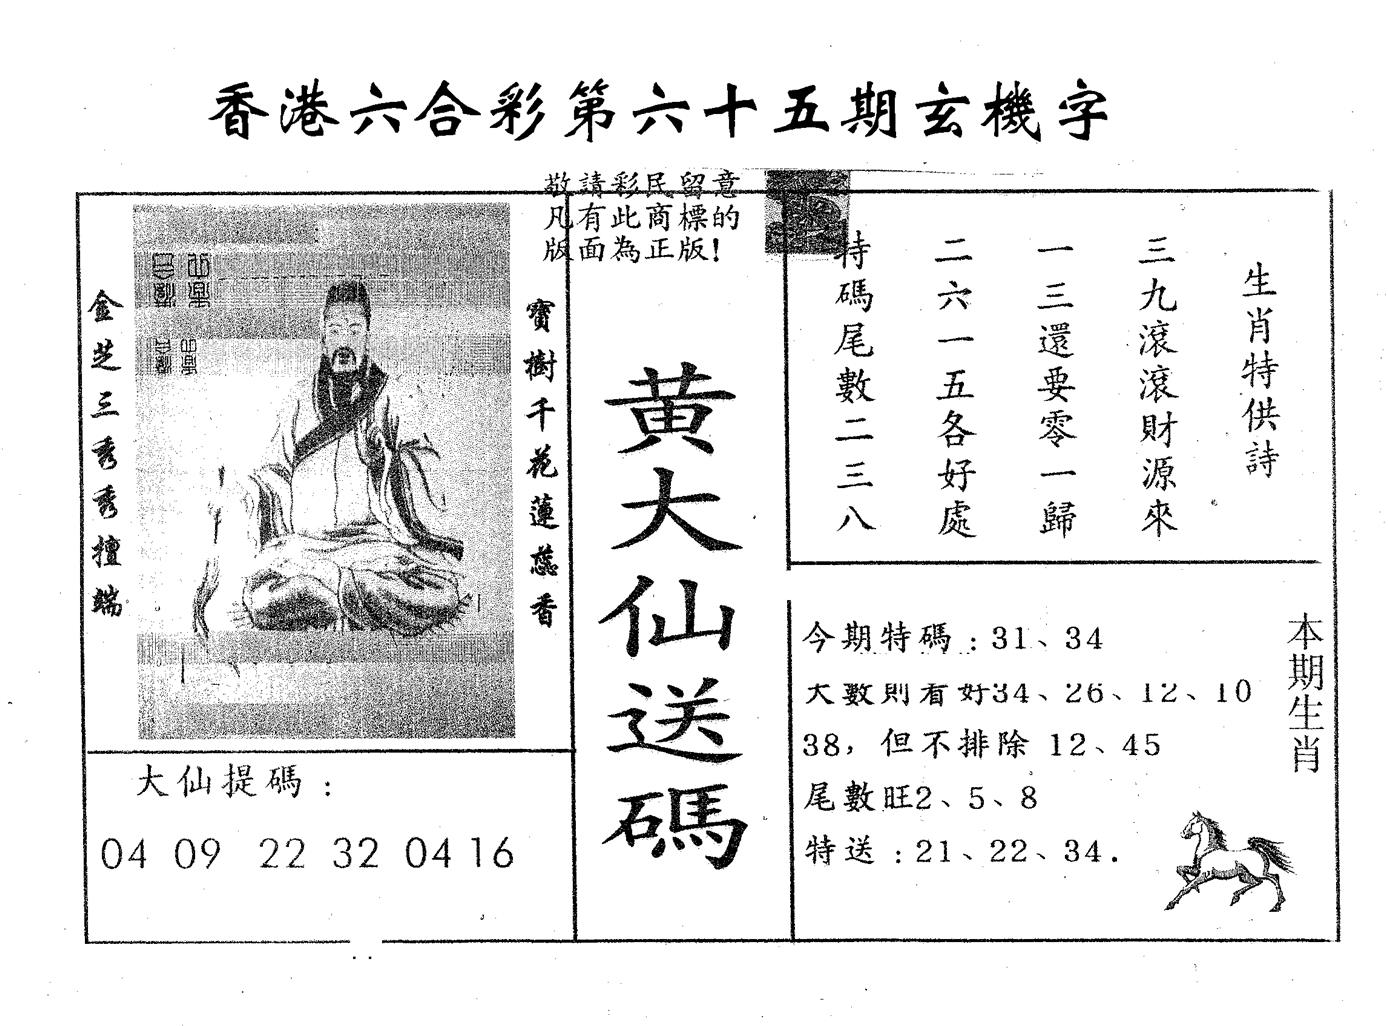 香港六合彩第六十五期玄機字
敬請彩民留意
凡有此商標的
版面為正版!
寶樹千花蓮蕊香
金芝三秀秀擅端
大仙提碼:
04 09 22 32 04 16
黃大仙送碼
生肖特供詩
三九滾滾財源來
一三還要零一歸
二六一五各好處
特碼尾數二三八
本期生肖
今期特碼:31、34
大數則看好34、26、12、10
38,但不排除 12、45
尾數旺2、5、8
特送:21、22、34.